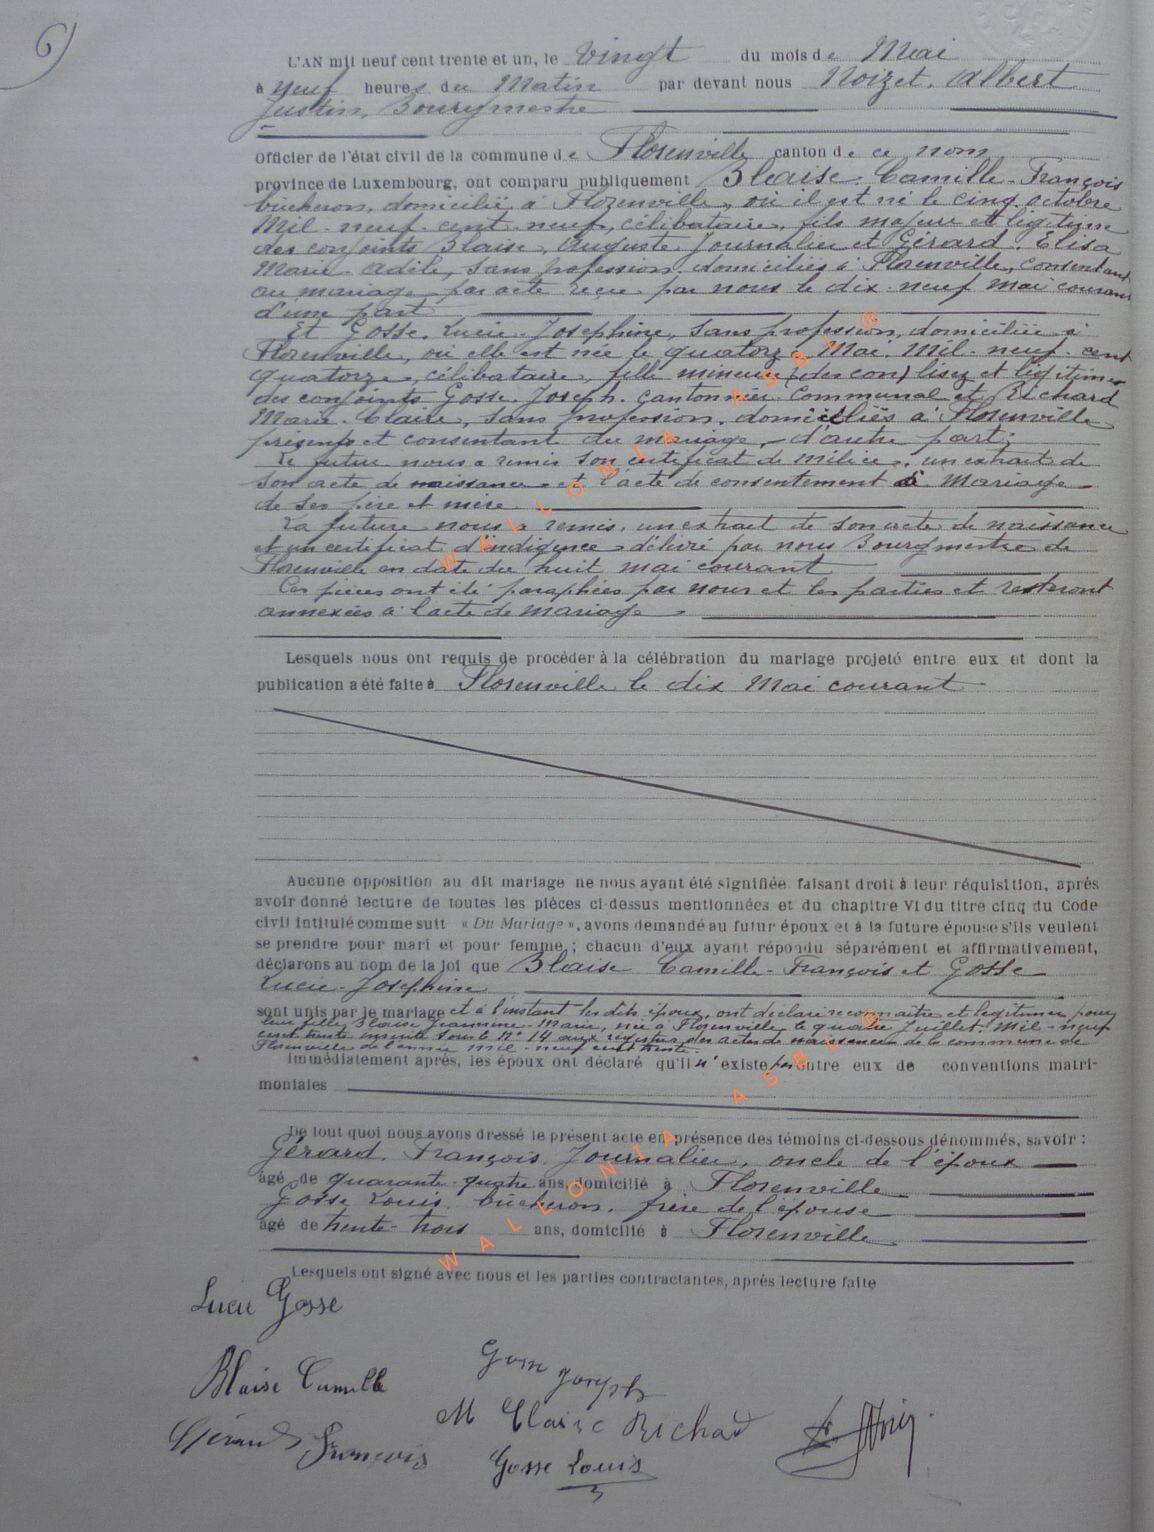 6)
L'AN mil neuf cent trente et un, le Vingt du mois de Mai
à neuf heures du Matin par devant nous Noizet, Albert
Justin, Bourgmestre
Officier de l'état civil de la commune de Florenville canton de ce nom
province de Luxembourg, ont comparu publiquement Blaise, Camille-François
bûcheron, domicilié à Florenville, où il est né le cinq octobre
Mil-neuf-cent-neuf, célibataire, fils majeur et légitime
des conjoints Blaise, Auguste, Journalier et Gérard, Elisa
Marie-Adèle, sans profession, domiciliés à Florenville, consentant
au mariage par acte reçu par nous le dix-neuf mai courant
d'une part
Et Gosse, Lucie-Josephine, sans profession, domiciliée à
Florenville, où elle est née le quatorze Mai, Mil-neuf-cent
quatorze, célibataire, fille mineure (des con) lisez et légitime
des conjoints Gosse, Joseph, Cantonnier Communal et Richard
Marie-Claire, sans profession, domiciliés à Florenville
présents et consentant au mariage, d'autre part;
Le futur nous a remis son certificat de milice, un extrait de
son acte de naissance et l'acte de consentement à mariage
de ses père et mère.
La future nous a remis, un extrait de son acte de naissance
et un certificat d'indigence délivré par nous Bourgmestre de
Florenville en date du huit mai courant
Ces pièces ont été paraphées par nous et les parties et resteront
annexées à l'acte de mariage.
Lesquels nous ont requis de procéder à la célébration du mariage projeté entre eux et dont la
publication a été faite à Florenville le dix Mai courant
Aucune opposition au dit mariage ne nous ayant été signifiée faisant droit à leur réquisition, après
avoir donné lecture de toutes les pièces ci-dessus mentionnées et du chapitre VI du titre cinq du Code
civil intitulé comme suit « Du Mariage », avons demandé au futur époux et à la future épouse s'ils veulent
se prendre pour mari et pour femme ; chacun d'eux ayant répondu séparément et affirmativement,
déclarons au nom de la loi que Blaise Camille-François et Gosse
Lucie-Josephine
sont unis par le mariage et à l'instant les dits époux, ont déclaré reconnaître et légitimer pour
leur fille Blaise Jeannine-Marie, née à Florenville le quatre Juillet Mil-neuf
cent trente inscrite sous le N° 14 aux registres des actes de naissances de la commune de
Florenville de l'année mil-neuf cent trente.
Immédiatement après, les époux ont déclaré qu'il n'existe pas entre eux de conventions matri-
moniales
De tout quoi nous avons dressé le présent acte en présence des témoins ci-dessous dénommés, savoir :
Gérard, François, Journalier, oncle de l'époux
âgé de quarante-quatre ans, domicilié à Florenville
Gosse Louis, bûcheron, frère de l'épouse
âgé de trente-trois ans, domicilié à Florenville
Lesquels ont signé avec nous et les parties contractantes, après lecture faite
Lucie Gosse
Blaise Camille
Gosse Joseph
M Claire Richard
Gérard François
Gosse Louis
WALLONIA ASBL ®
WALLONIA ASBL ®